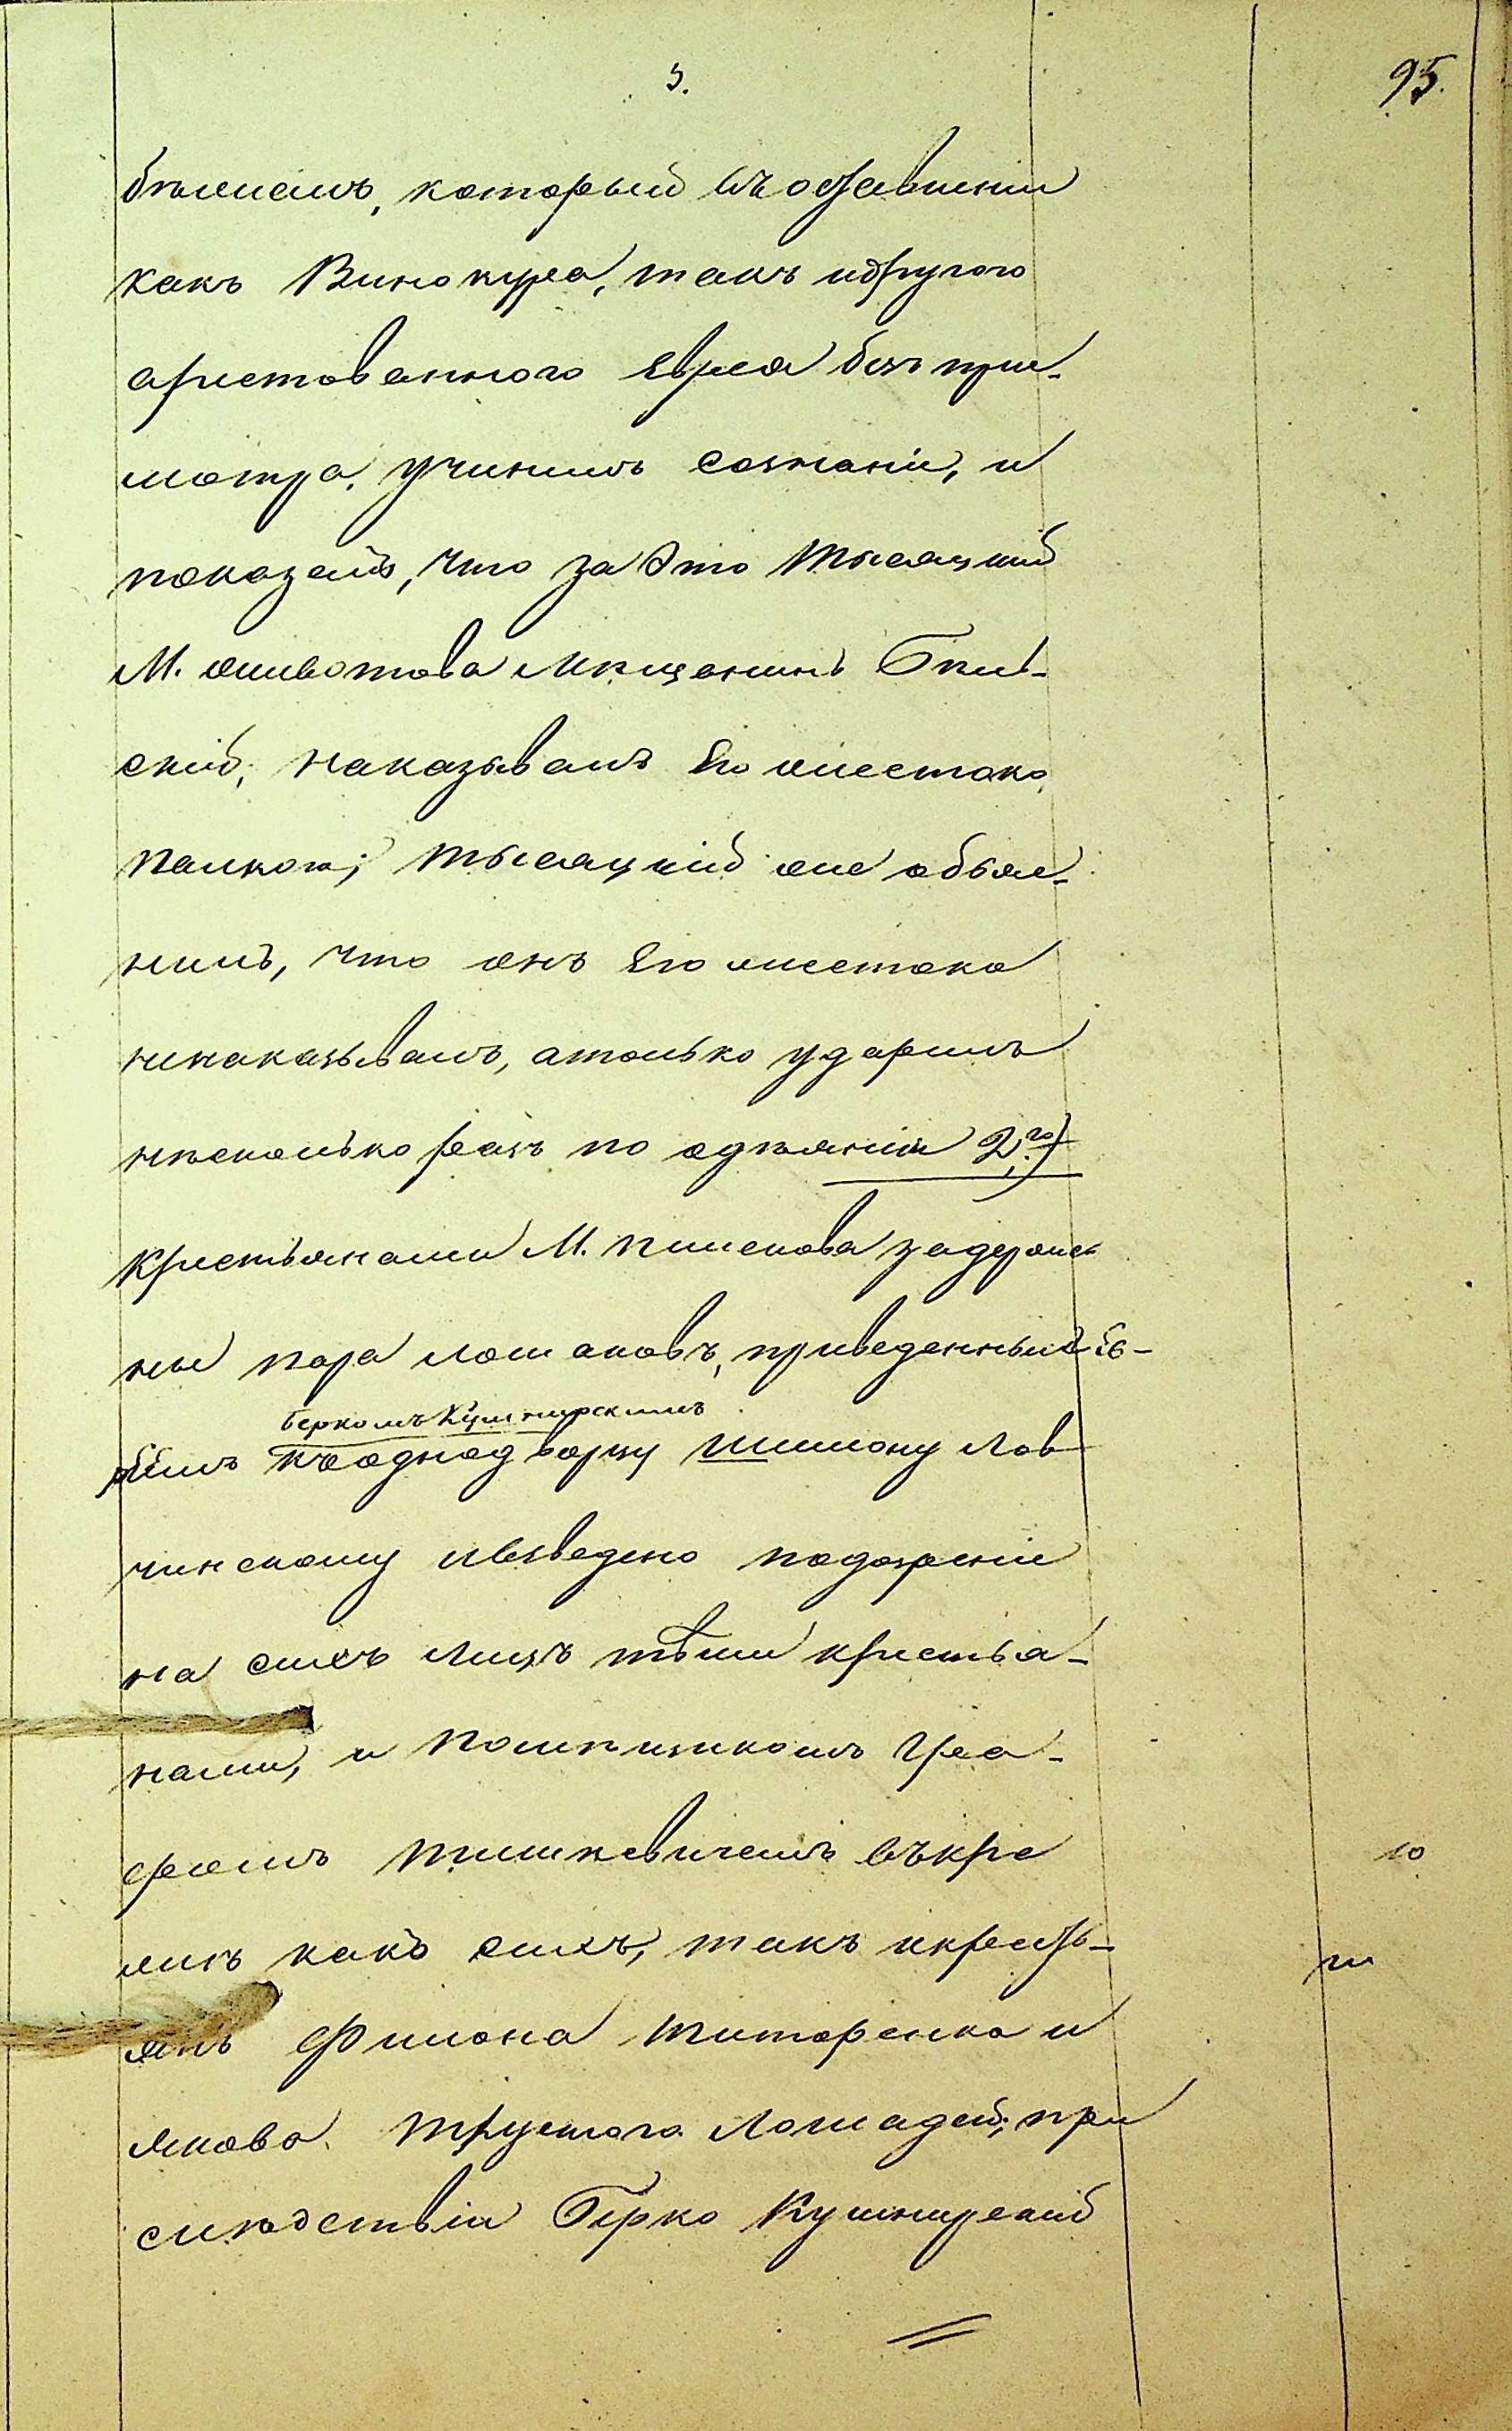 3.
95.
который въ оставленіи
какъ Винокура, такъ идругого
арестованного Еврея безъ при-
смотра, учинилъ сознаніе, и
показалъ, что за это тысяцкій
М. Животова мѣщанинъ
скій, наказывалъ Его жестоко
палкою; тысяцкій же объяс-
нилъ, что онъ Его жестоко
ненаказывалъ, атолько ударилъ
нѣсколько разъ по одѣянію 2го)
Крестьянами М. Пискова задержа-
ны пара лошаковъ, приведенныхъ Ев-
реемъ Беркомъ Кушнирскимъ къ однодворцу Шимону Лов-
чинскому ивзведено подозреніе
на сихъ лицъ тѣми крестья-
нами, и помѣщикомъ Гра-
фомъ Тишкевичемъ въ кра
жѣ какъ сихъ, такъ икресть-
янъ Филона Титаренка и
Якова Лошадей; при
слѣдствіи Берко Кушнирскій